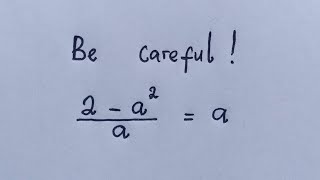 Be careful!
2 - a² / a = a